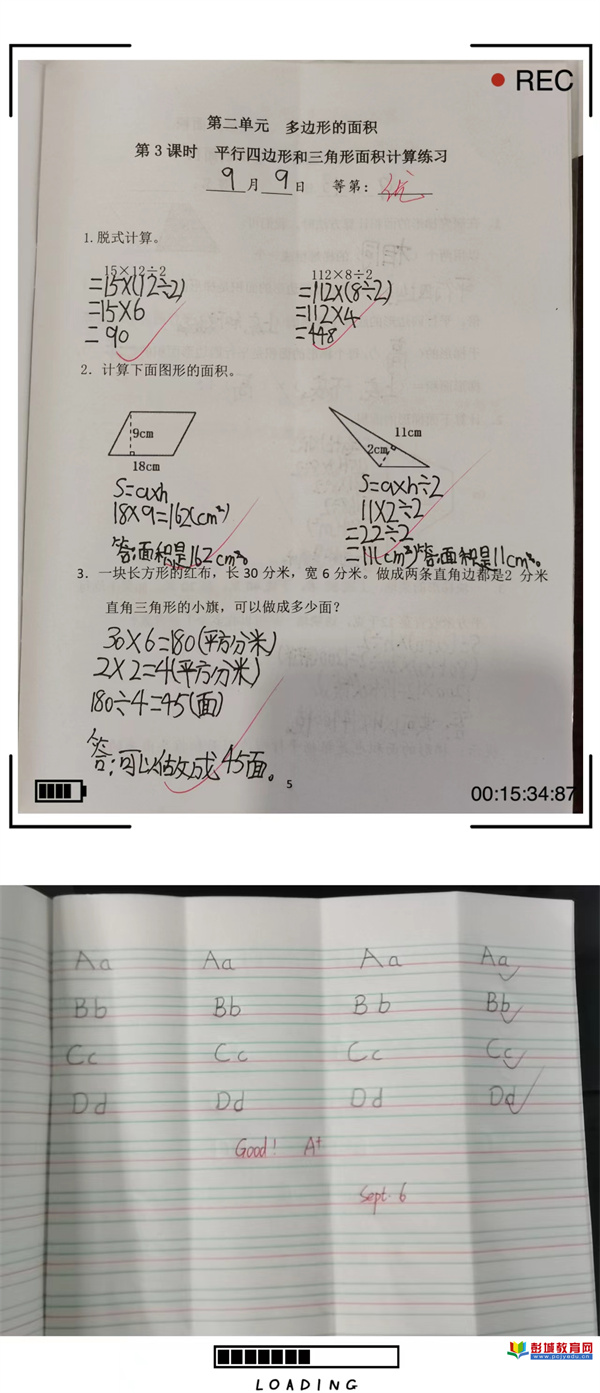 REC
第二单元 多边形的面积
第3课时 平行四边形和三角形面积计算练习
9月9日 等第：优
1.脱式计算。
15×12÷2 112×8÷2
=15×(12÷2) =112×(8÷2)
=15×6 =112×4
=90 =448
2. 计算下面图形的面积。
9cm 11cm
2cm
18cm
S=a×h S=a×h÷2
18×9=162(cm²) 11×2÷2
=22÷2
答:面积是162cm²。 =11(cm²)答:面积是11cm²。
3. 一块长方形的红布，长30分米，宽6分米。做成两条直角边都是2 分米
直角三角形的小旗，可以做成多少面？
30×6=180(平方分米)
2×2=4(平方分米)
180÷4=45(面)
答:可以做成45面。
5
00:15:34:87
Aa Aa Aa Aa
Bb Bb Bb Bb
Cc Cc Cc Cc
Dd Dd Dd Dd
Good! A+
Sept. 6
彭城教育网
www.pcjyedu.cn
LOADING